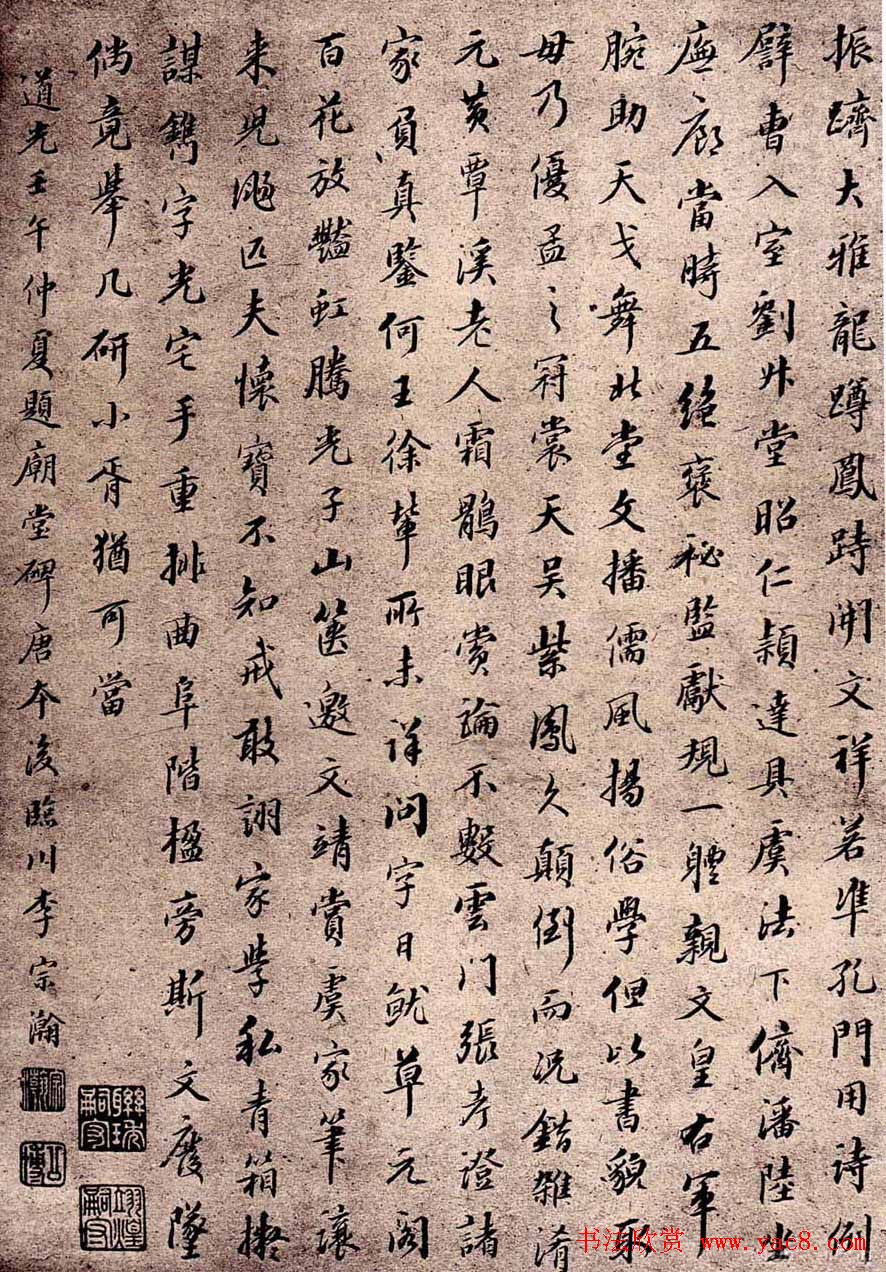 振躋大雅龍蹲鳳跱開文祥若準孔門用詩例
譬曹入室劉升堂昭仁頴達具虞法下儕潘陸坐
廡廊當時五絕褒祕監獻規一軆親文皇右軍
腕助天戈舞北堂文播儒風揚俗學但以書貌取
毋乃優孟之冠裳天吳紫鳳久顛倒而況錯雜淆
元黃覃溪老人霜鶻眼賞論不數雲門張考證諸
家負真鑒何王徐輩所未詳問字日就草元閣
百花放豔虹騰光子山箧邀文靖賞虞家筆讓
来匹夫懷寶不知戒敢詡家學私青箱擬
謀鐫字光宅手重排曲阜階楹旁斯文廢墜
倘竟舉几研小胥猶可當
道光壬午仲夏題廟堂碑唐本後臨川李宗瀚
聯琇嗣守
翊煌嗣守
书法欣赏 www.yac8.com